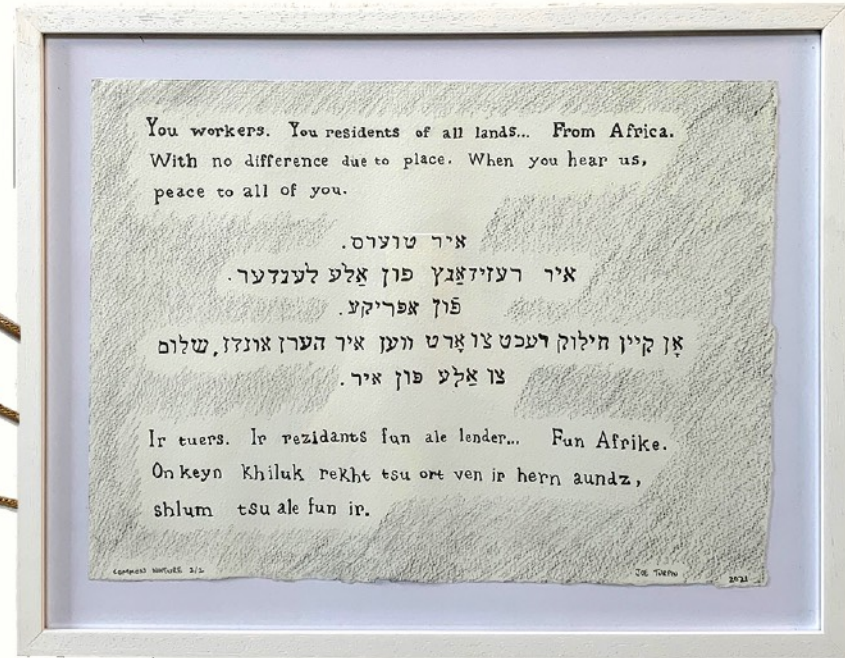 You workers. You residents of all lands... From Africa.
With no difference due to place. When you hear us,
peace to all of you.
איר טוערס.
איר רעזידאַנץ פון אַלע לענדער.
פֿון אפריקע.
אָן קיין חילוק רעכט צו אָרט ווען איר הערן אונדז, שלום
צו אַלע פון איר.
Ir tuers. Ir rezidants fun ale lender... Fun Afrike.
On keyn khiluk rekht tsu ort ven ir hern aundz,
shlum tsu ale fun ir.
COMMON NATURE 2/2 JOE TURPIN 2021